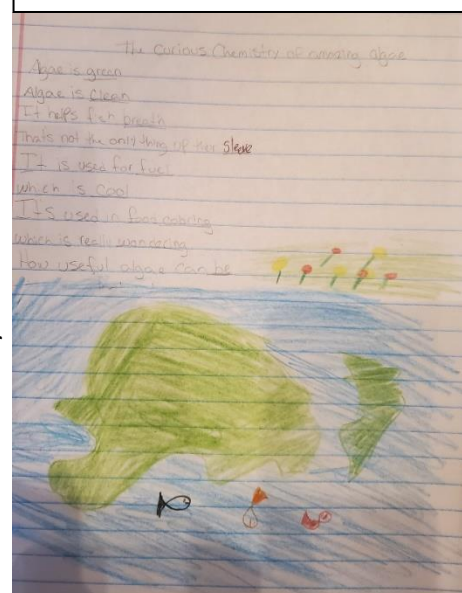 The Curious Chemistry of amazing algae
Algae is green
Algae is clean
It helps fish breath
Thats not the only thing up their Sleeve
It is used for fuel
which is cool
It's used in food coloring
which is really wondering
How useful algae can be